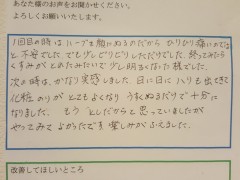 あなた様のお声をお聞かせください。
よろしくお願いいたします。
1回目の時はハーブを顔にぬるのだからひりひり痛いのでは
と不安でした でも少しピリピリしただけでした 終ってみたら
くすみがとれたみたいで少し明るくなった様でした
次の時は、かなり実感しました 日に日にハリも出てきて
化粧のりがとてもよくなり うすくぬるだけで十分に
なりました。もう としだからと思っていましたが
やってみてよかったです 楽しみがふえました。
改善してほしいところ